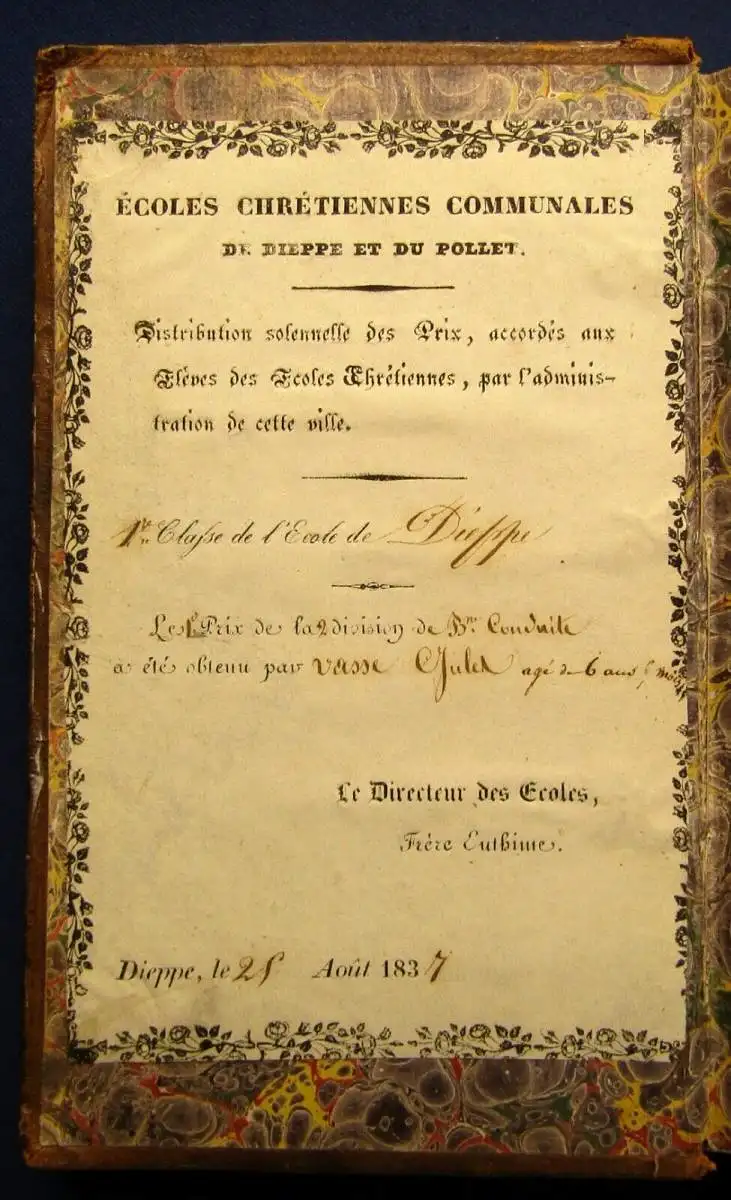 ÉCOLES CHRÉTIENNES COMMUNALES
DE DIEPPE ET DU POLLET.
Distribution solennelle des Prix, accordés aux
Elèves des Ecoles Chrétiennes, par l'adminis-
tration de cette ville.
1re Classe de l'Ecole de Dieppe
Le 1er Prix de la 2 division de Bne Conduite
a été obtenu par Vasse Jules agé de 6 ans
Le Directeur des Ecoles,
Frère Euthime.
Dieppe, le 25 Août 1837